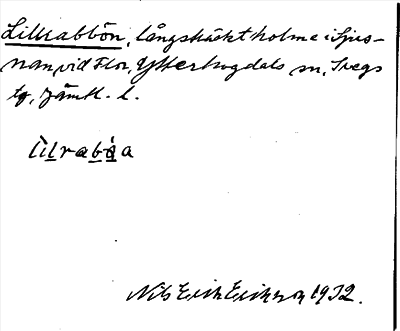 Lillrabbön, långsträckt holme i Ljus-
nan, vid Flor, Ytterhogdals sn, Svegs
tg, Jämtl. l.
lilrabȧa
Nils Erik Erikson 1932.